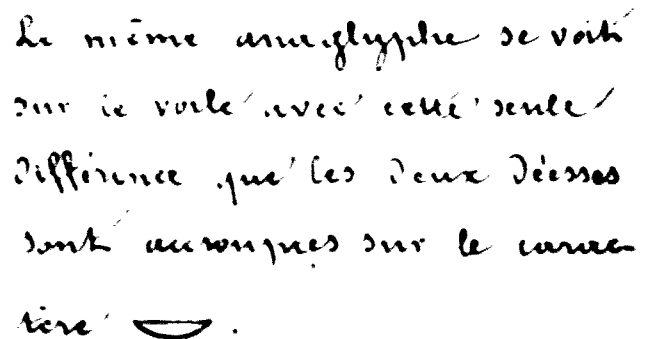 Le même anaglyphe se voit
sur le voile avec cette seule
différence que les deux déesses
sont accroupies sur le carac
tère .